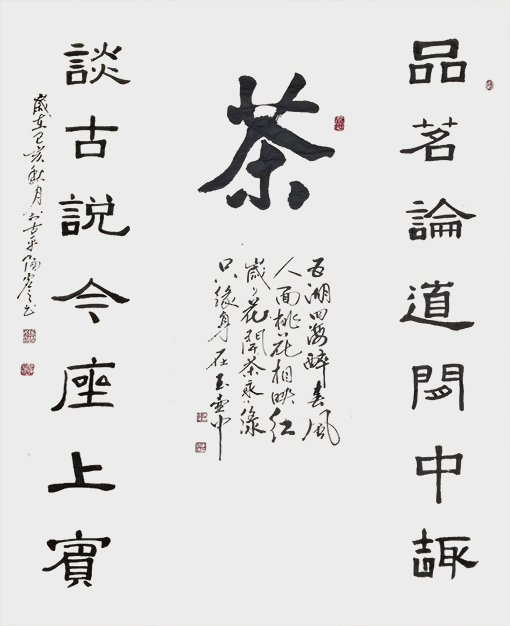 品茗論道閒中趣
茶
五湖四海醉春風
人面桃花相映红
歲々花開茶永綠
只緣身在玉壺中
談古說今座上賓
歲在己亥秋月